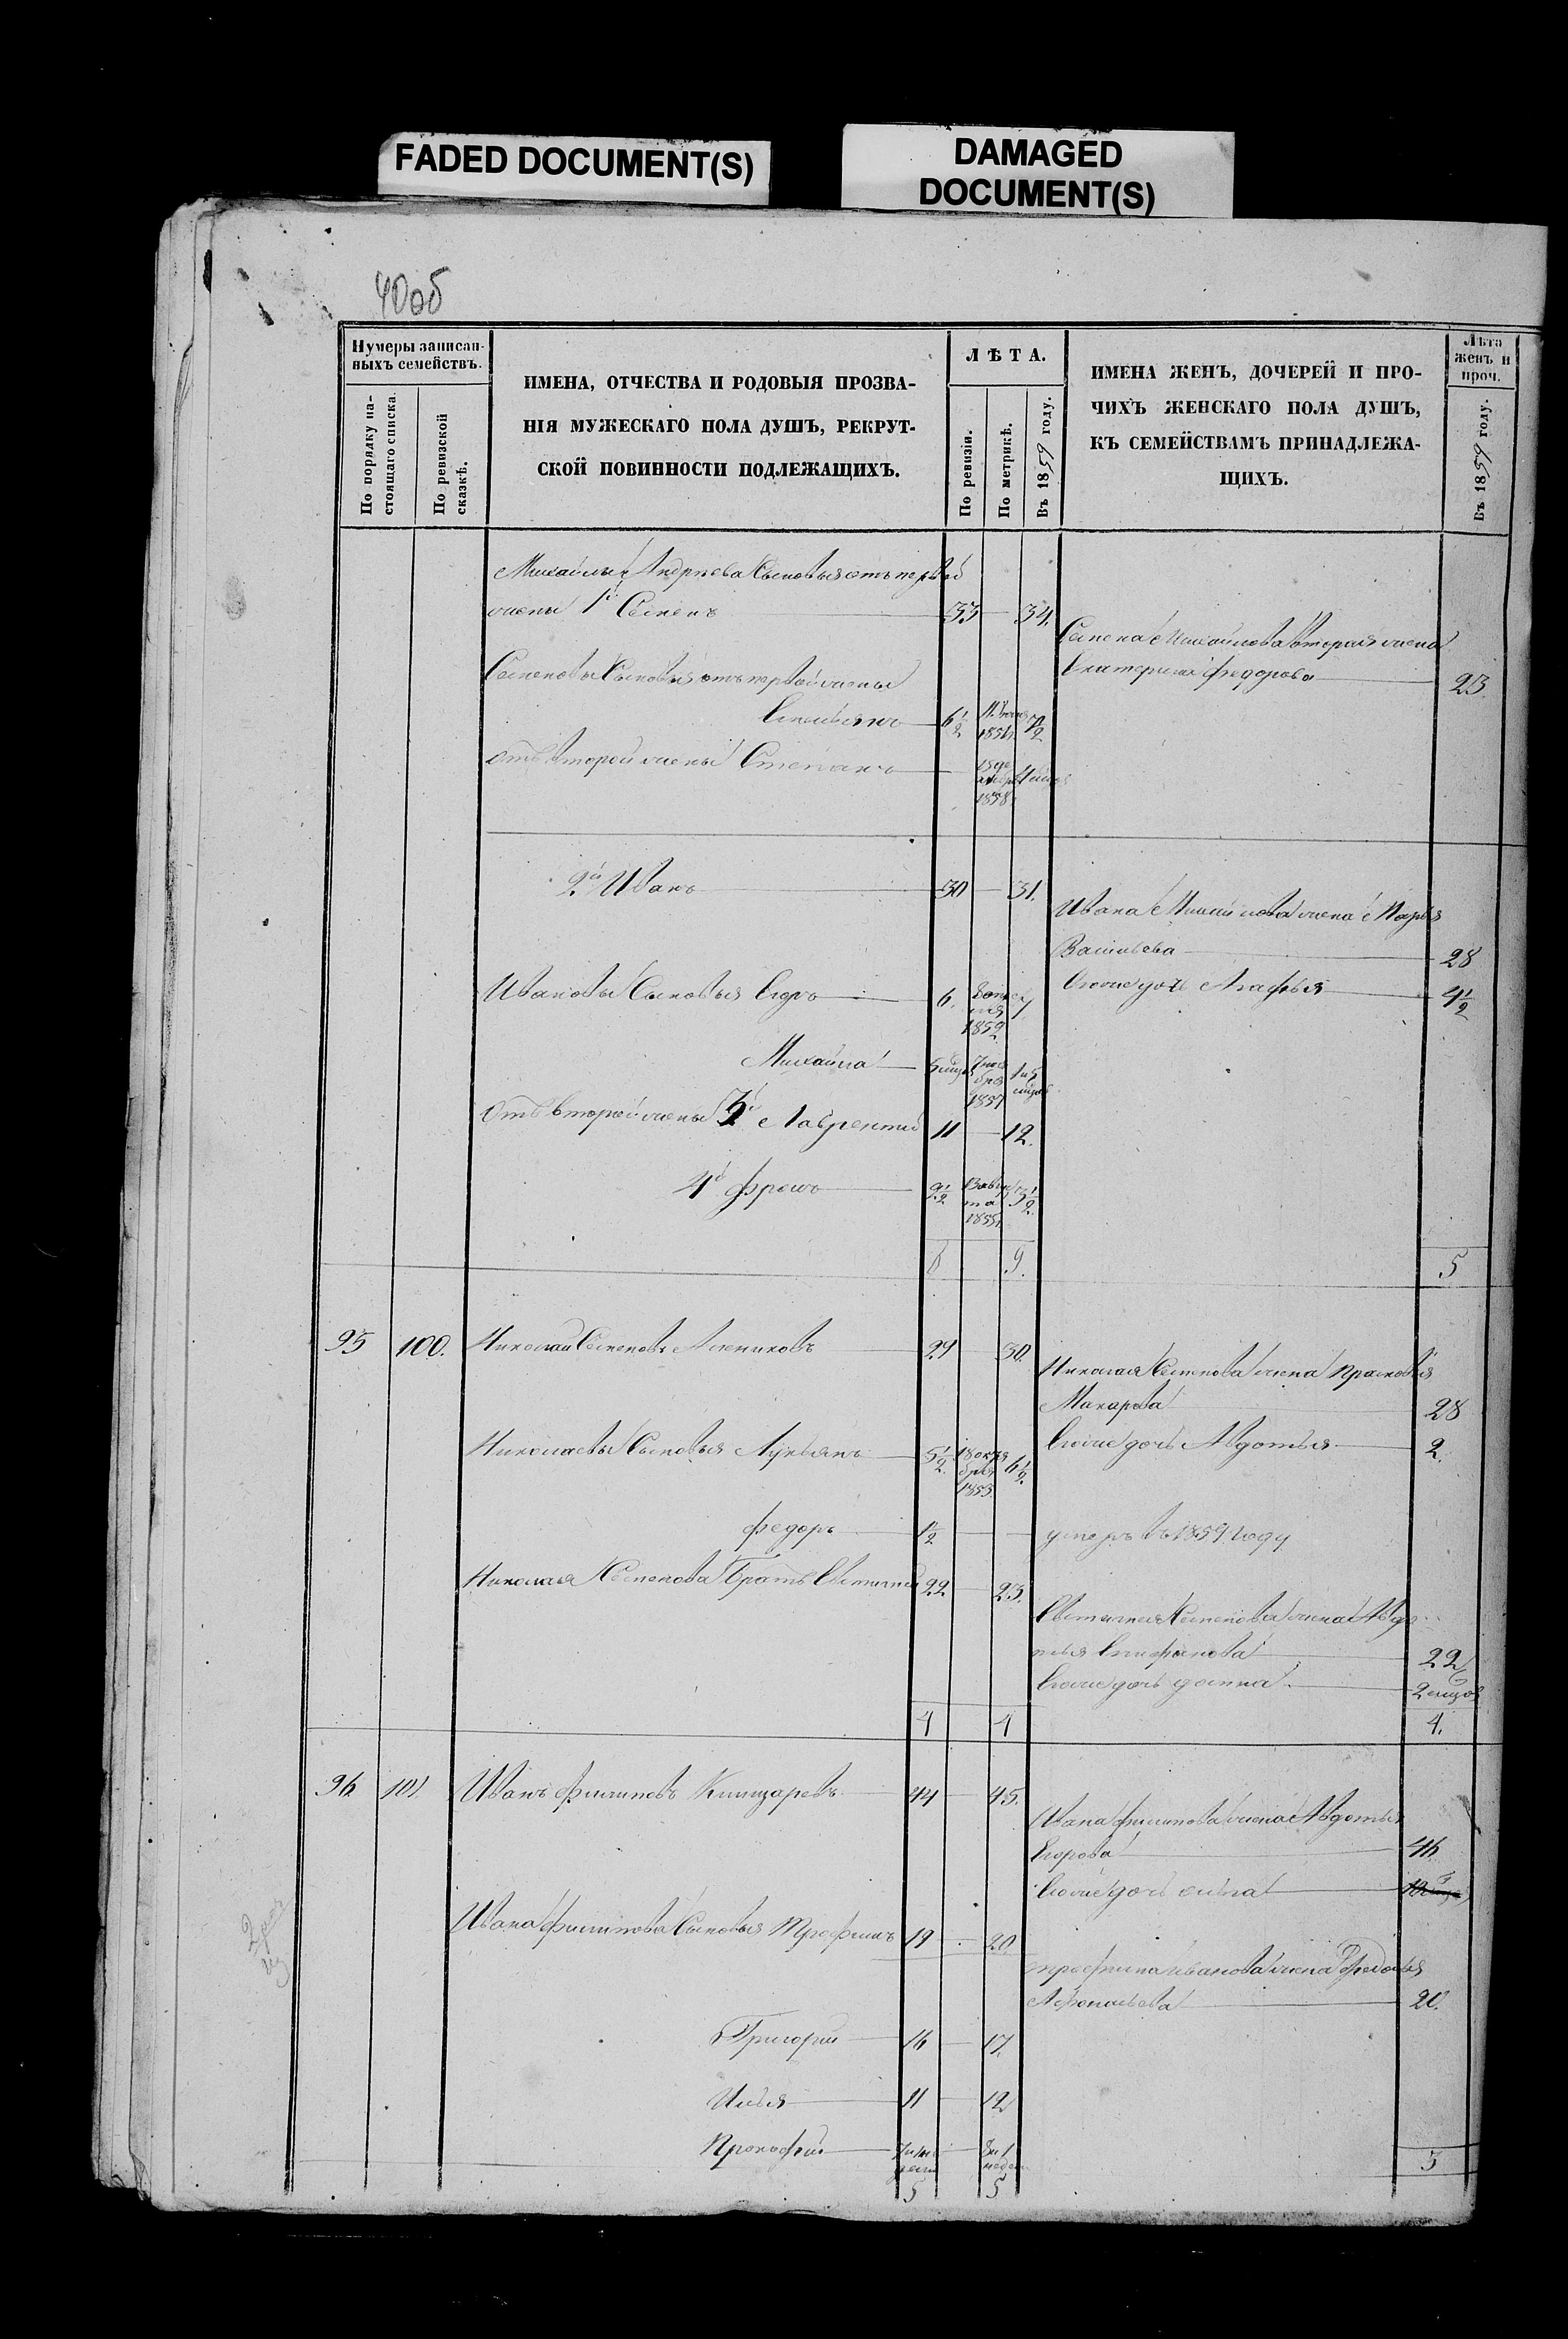 FADED DOCUMENT(S)
DAMAGED
DOCUMENT(S)
40об
Нумеры записан-
ныхъ семействъ.
По порядку на-
стоящаго списка.
По ревизской
сказкѣ.
ИМЕНА, ОТЧЕСТВА И РОДОВЫЯ ПРОЗВА-
НІЯ МУЖЕСКАГО ПОЛА ДУШЪ, РЕКРУТ-
СКОЙ ПОВИННОСТИ ПОДЛЕЖАЩИХЪ.
ЛѢТА.
По ревизіи.
По метрикѣ.
Въ 1859 году.
ИМЕНА ЖЕНЪ, ДОЧЕРЕЙ И ПРО-
ЧИХЪ ЖЕНСКАГО ПОЛА ДУШЪ,
КЪ СЕМЕЙСТВАМЪ ПРИНАДЛЕЖА-
ЩИХЪ.
Лѣта
женъ и
проч.
Въ 1859 году.
Михайлы Андрѣева Сыновья отъ первой
жены 1й Семенъ 33 34.
Семена Михайлова вторая жена
Екатерина Федорова 23.
Семеновы Сыновья отъ первой жены
Емельянъ 6½ 7½
отъ второй жены Степанъ
1858
2й Иванъ 30 31.
Ивана Михайлова жена Марья
Васильева 28
Ивановы Сыновья Егоръ 6. 7
1852
Ихъ же дочь Агафья 4½
Михайла 5 мцов 1 и 5
мцов
1857
Отъ второй жены 3й Лаврентий 11 12.
4й Фролъ 2½ 3½
1855
8 9. 5
95 100. Николай Семеновъ 29 30.
Николая Семенова жена Прасковья
Макарова 28
Николаевы Сыновья Лукьянъ 5½ 18 октя
бря
1853 6½.
Ихъ же дочь Авдотья 2.
Федоръ 1½ умеръ въ 1859 году
Николая Семенова Братъ Евтигней 22 23.
Евтигнея Семенова жена Авдо-
тья Епифанова 22
Ихъ же дочь 2 мцов
4 4 4.
96. 101. Иванъ Филиповъ 44 45.
Ивана Филипова жена Авдотья
Егорова 46
Ихъ же дочь
Ивана Филипова Сыновья Трофимъ 19 20
Трофима Иванова жена Федосья
Афонасьева 20.
Григорий 16 17.
Илья 11 12
Прокофий
5 5 3